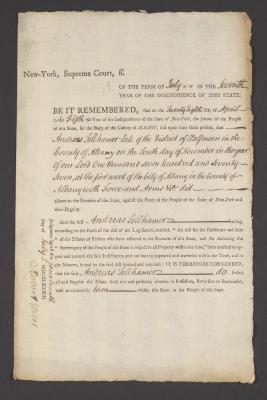 New-York, Supreme Court, ss.
OF THE TERM OF July IN THE Seventh
YEAR OF THE INDEPENDENCE OF THIS STATE;
BE IT REMEMBERED, that on the Twenty Eighth Day of April
in the Fifth Year of the Independence of the State of New-York, the Jurors of the People
of this State, for the Body of the County of ALBANY, did upon their Oath present, that
Andreas Tollhamer late of the District of
County of Albany on the Tenth day of November in the year
of our Lord One thousand seven hundred and Seventy
Seven, at the first ward of the City of Albany in the County of
Albany with force and Arms &c. did
adhere to the Enemies of this State, against the Peace of the People of the State of New-York and
their Dignity.
And the said Andreas Tollhamer having
according to the Form of the Act of the Legislature, entitled, "An Act for the Forfeiture and Sale
"of the Estates of Persons who have adhered to the Enemies of this State, and for declaring the
"Sovereignty of the People of this State in respect to all Property within the same," been notified to ap-
pear and traverse the said Indictment, and not having appeared and traversed within the Time, and in
the Manner, in and by the said Act limited and required; IT IS THEREFORE CONSIDERED,
that the said Andreas Tollhamer do forfeit
all and singular the Estate, both real and personal, whether in Possession, Reversion or Remainder,
held or claimed by him within this State, to the People of this State.
Judgment signed this
of July